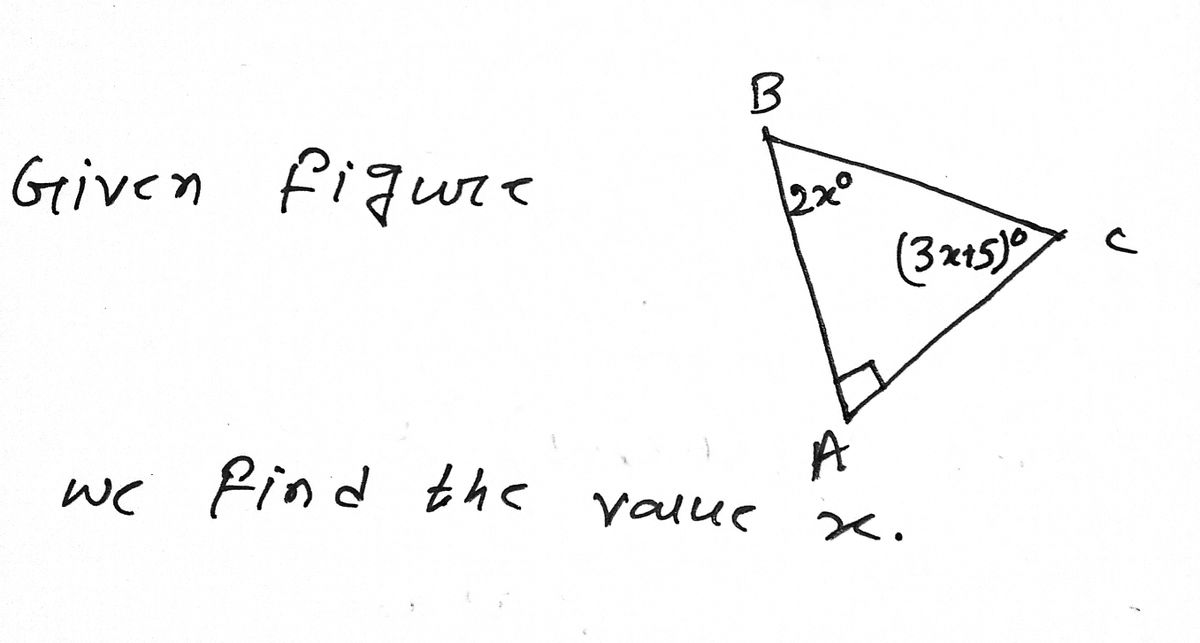 B
Given figure
2x°
(3x+5)° C
A
we find the value x.